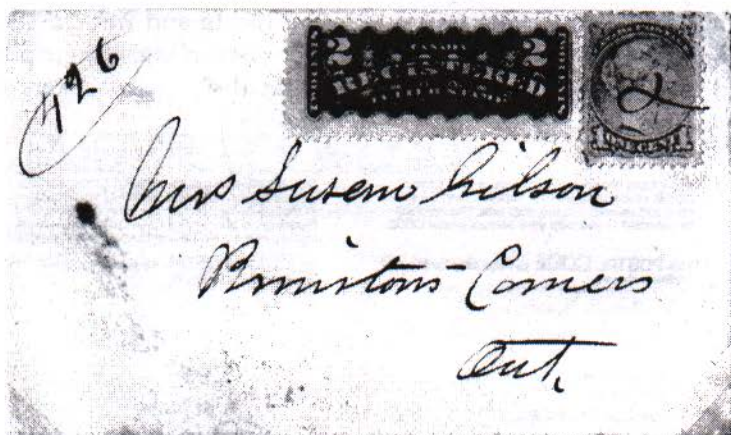 426
2 CANADA 2
REGISTERED
2
Mrs Susan Gilson
Brinstons Corners
Ont.